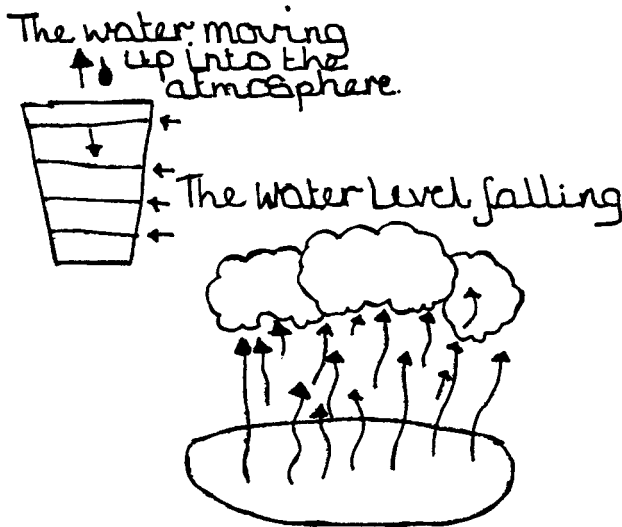 The water moving
up into the
atmosphere.
The Water Level falling